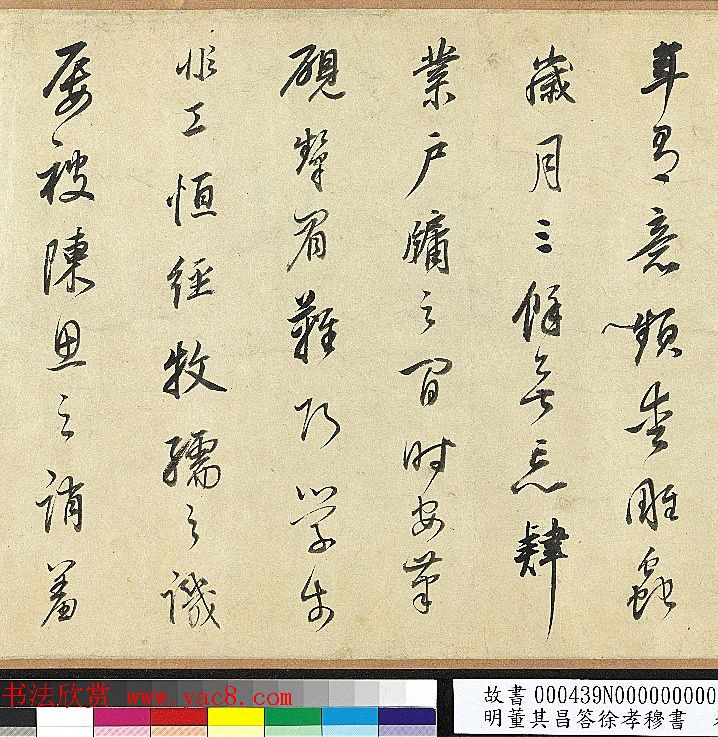 年意頻愛雕蟲
歲月三餘無忘肄
業戶牖之間時安筆
硯顰眉難巧學步
非工恆經牧孺之譏
屢被陳思之誚羞
书法欣赏 www.yac8.com
故書 000439N000000000
明董其昌答徐孝穆書